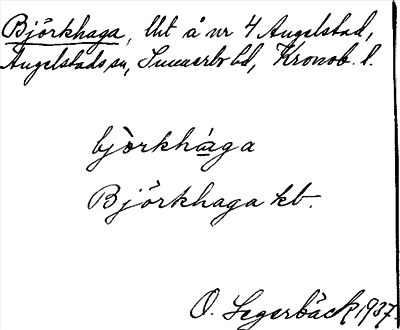 Björkhaga, lht å nr 4 Angelstad,
Angelstads sn, Sunnerbo hd, Kronob. l.
bjò̀rkhá̱ga
Björkhaga kb.
O. Segerbäck 1937.